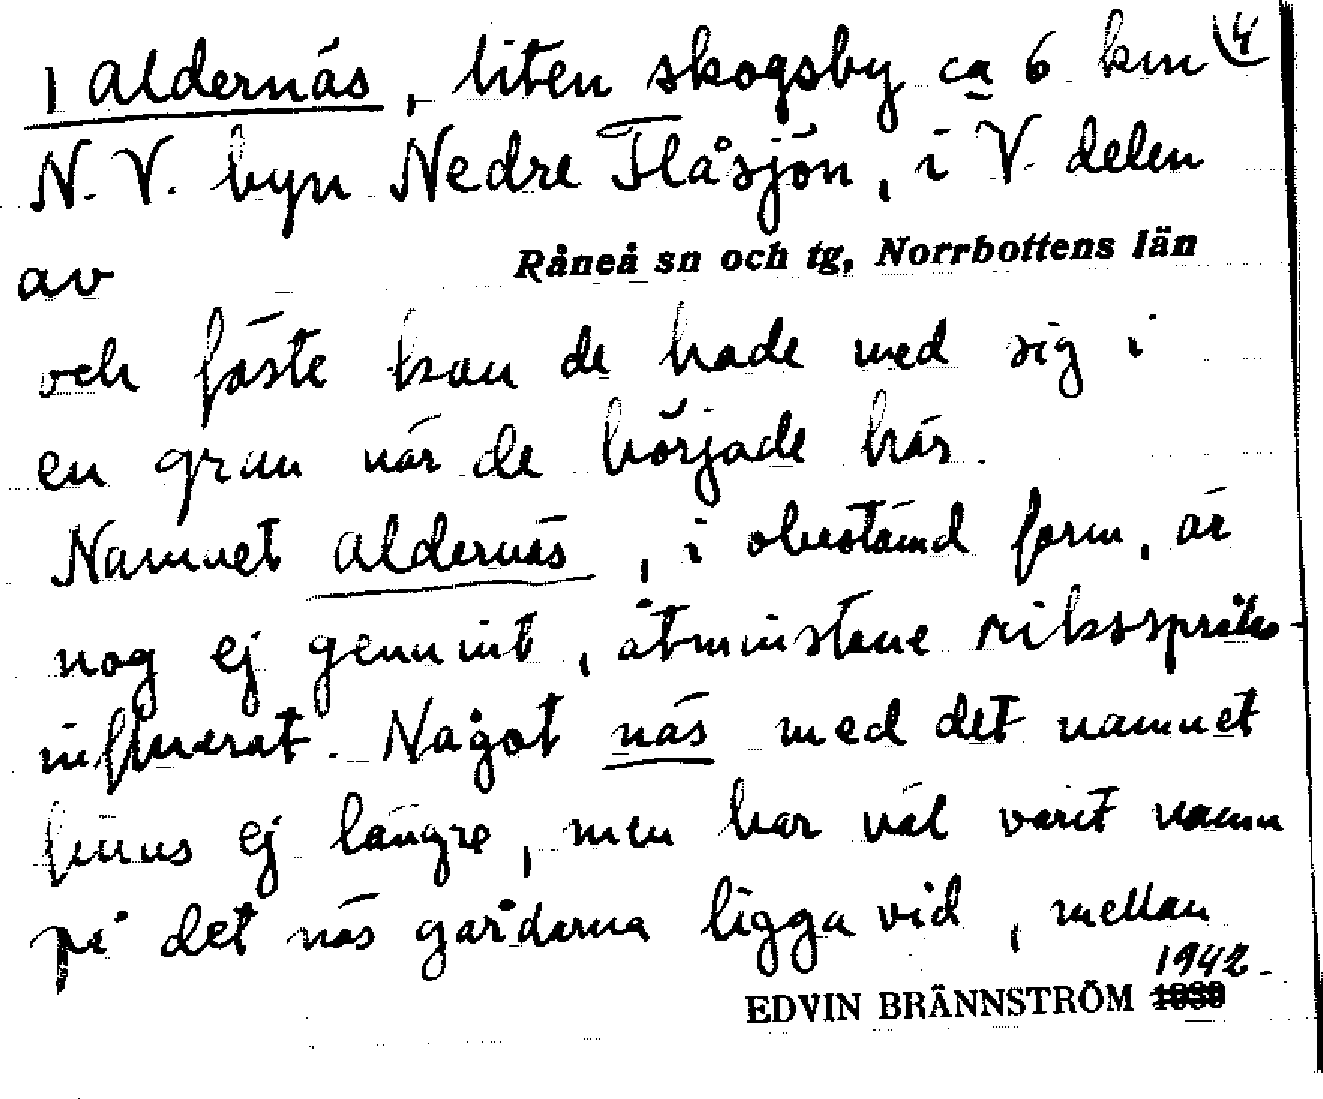 1 Aldernäs, liten skogsby ca 6 km 4
N.V. byn Nedre Flåsjön, i V. delen
av Råneå sn och tg, Norrbottens län
och fäste kon de hade med sig i
en gran när de började här.
Namnet Aldernäs, i obestämd form, är
nog ej genuint, åtminstone riksspråks-
influerat. Något näs med det namnet
finns ej längre, men har väl varit namn
på det näs gårdarna ligga vid, mellan
1942
EDVIN BRÄNNSTRÖM 1939